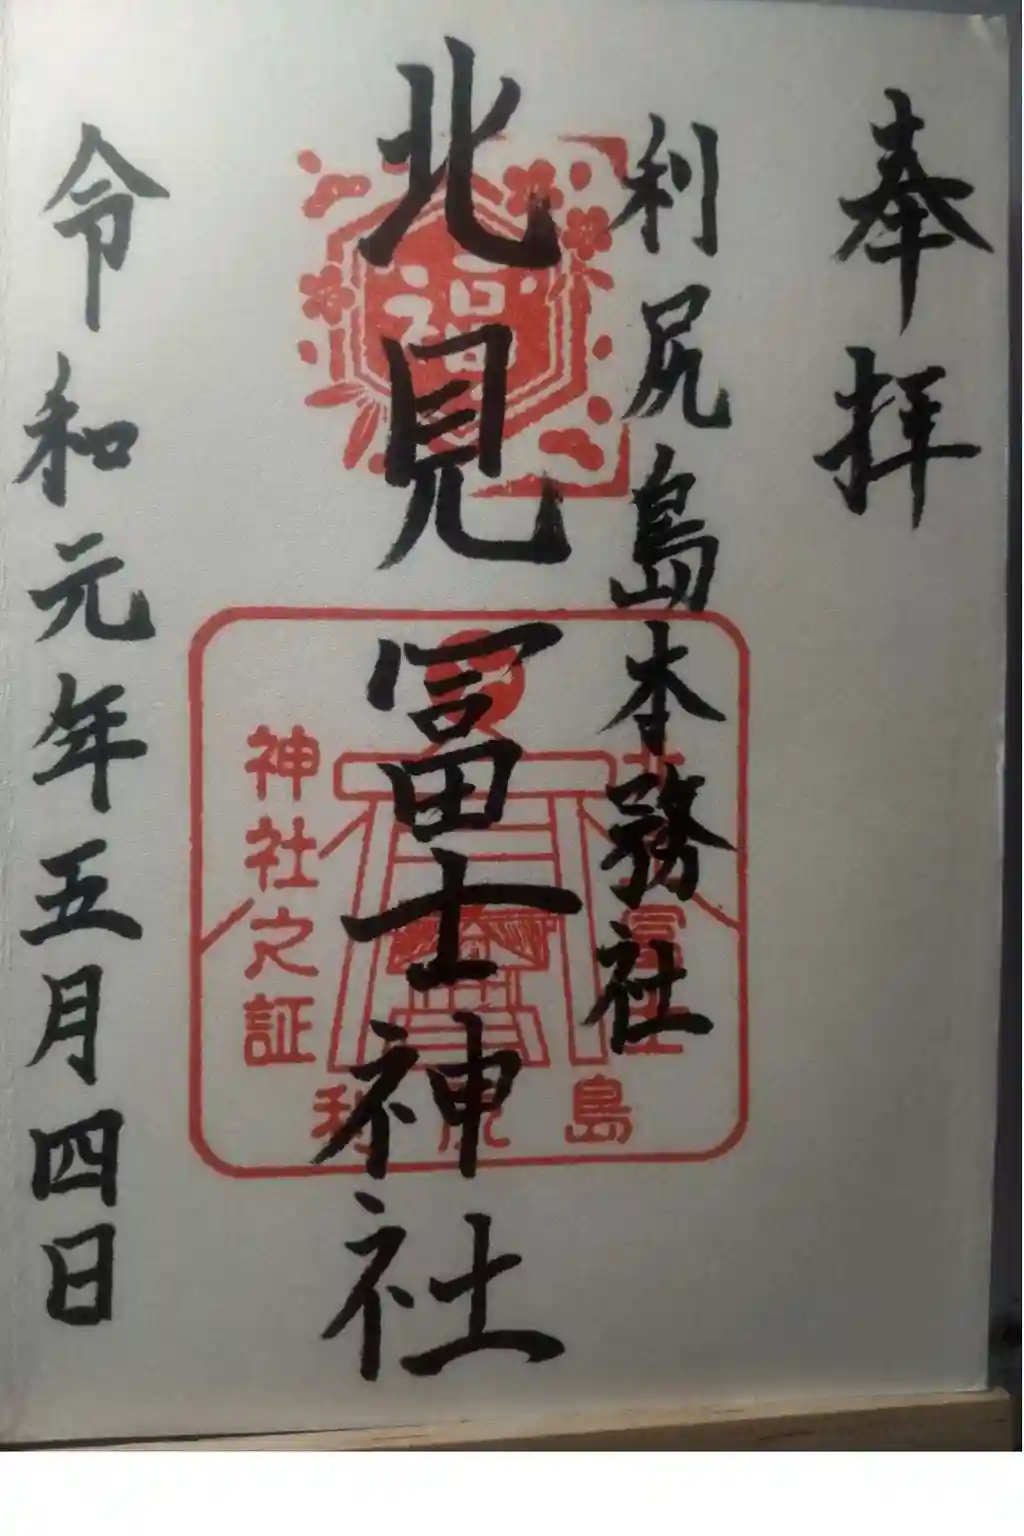 奉拝
利尻島本務社
北見冨士神社
令和元年五月四日
福
神社之証
利尻島